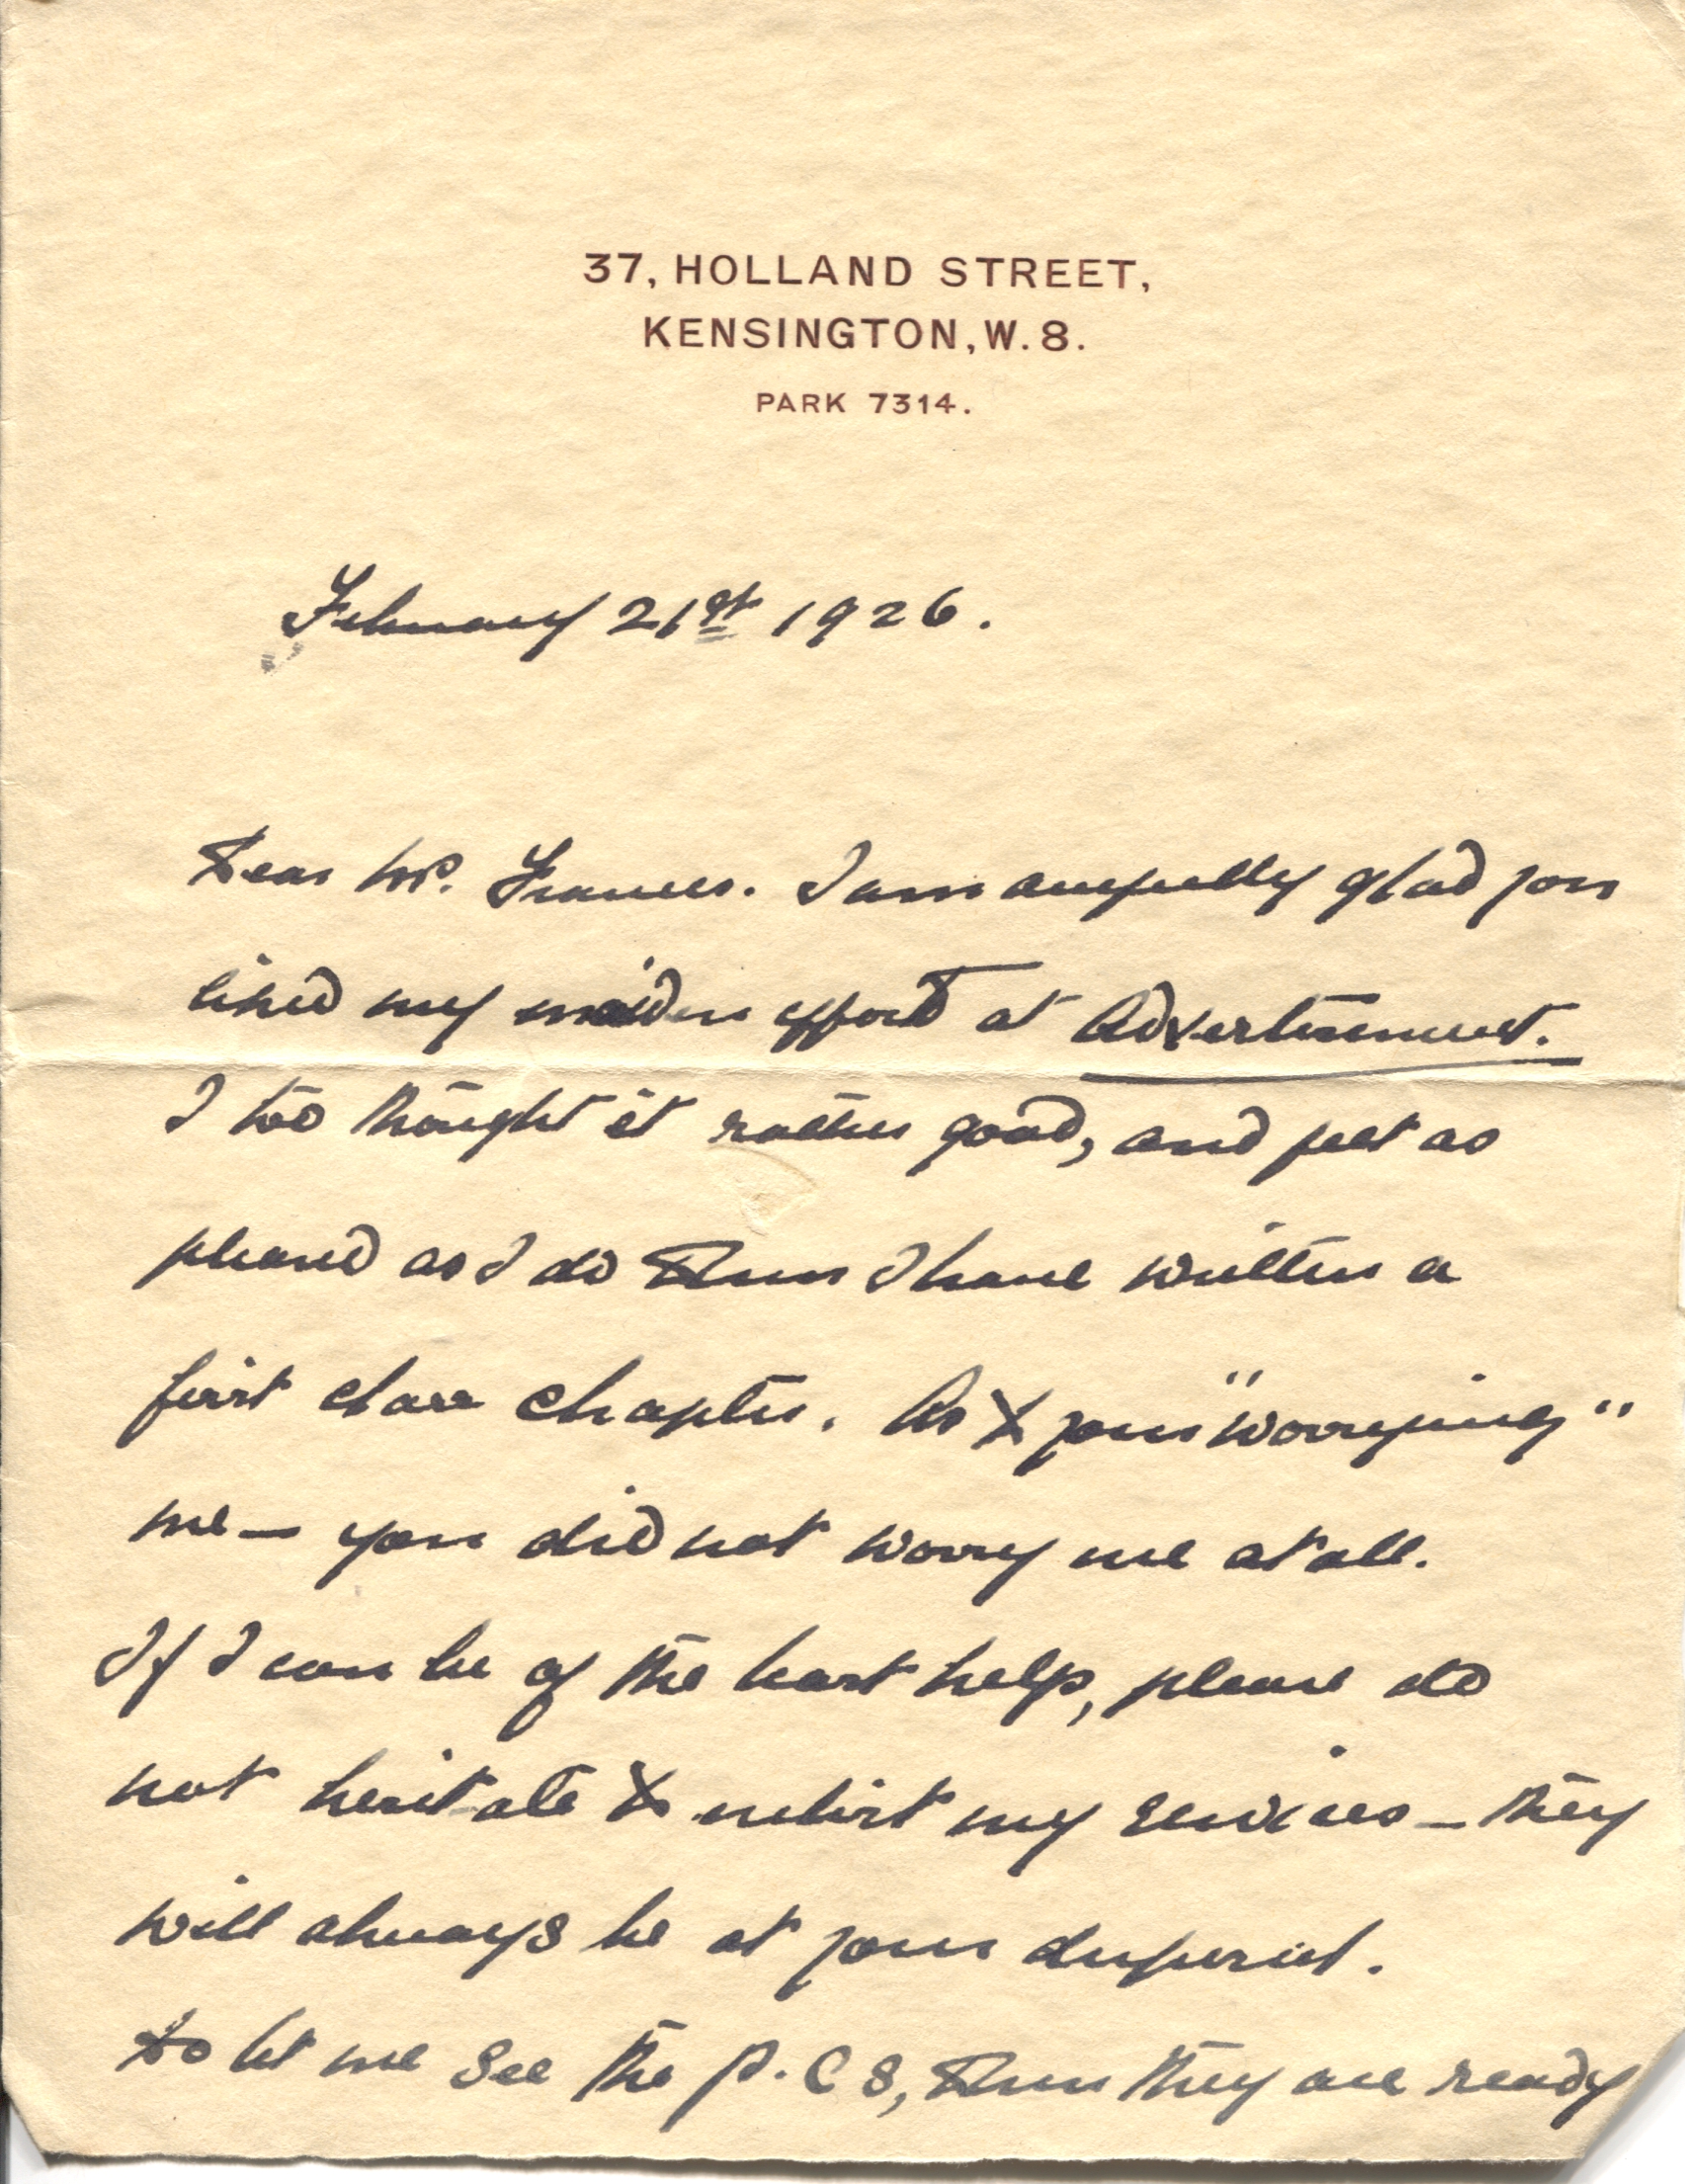 37, HOLLAND STREET,
KENSINGTON, W. 8.
PARK 7314.
February 21st 1926.
Dear Mr. Francis. I am awfully glad you
liked my maiden effort at Advertisement.
I too thought it rather good, and felt as
pleased as I do when I have written a
first class chapter. As to your "worrying"
me — you did not worry me at all.
If I can be of the least help, please do
not hesitate to enlist my services — they
will always be at your disposal.
Do let me see the P. C s, when they are ready